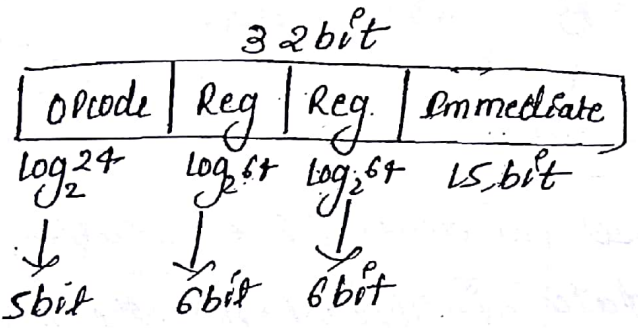 32bit
Opcode Reg Reg. Immediate
log₂24 log₂64 log₂64 15,bit
5bit 6bit 6bit